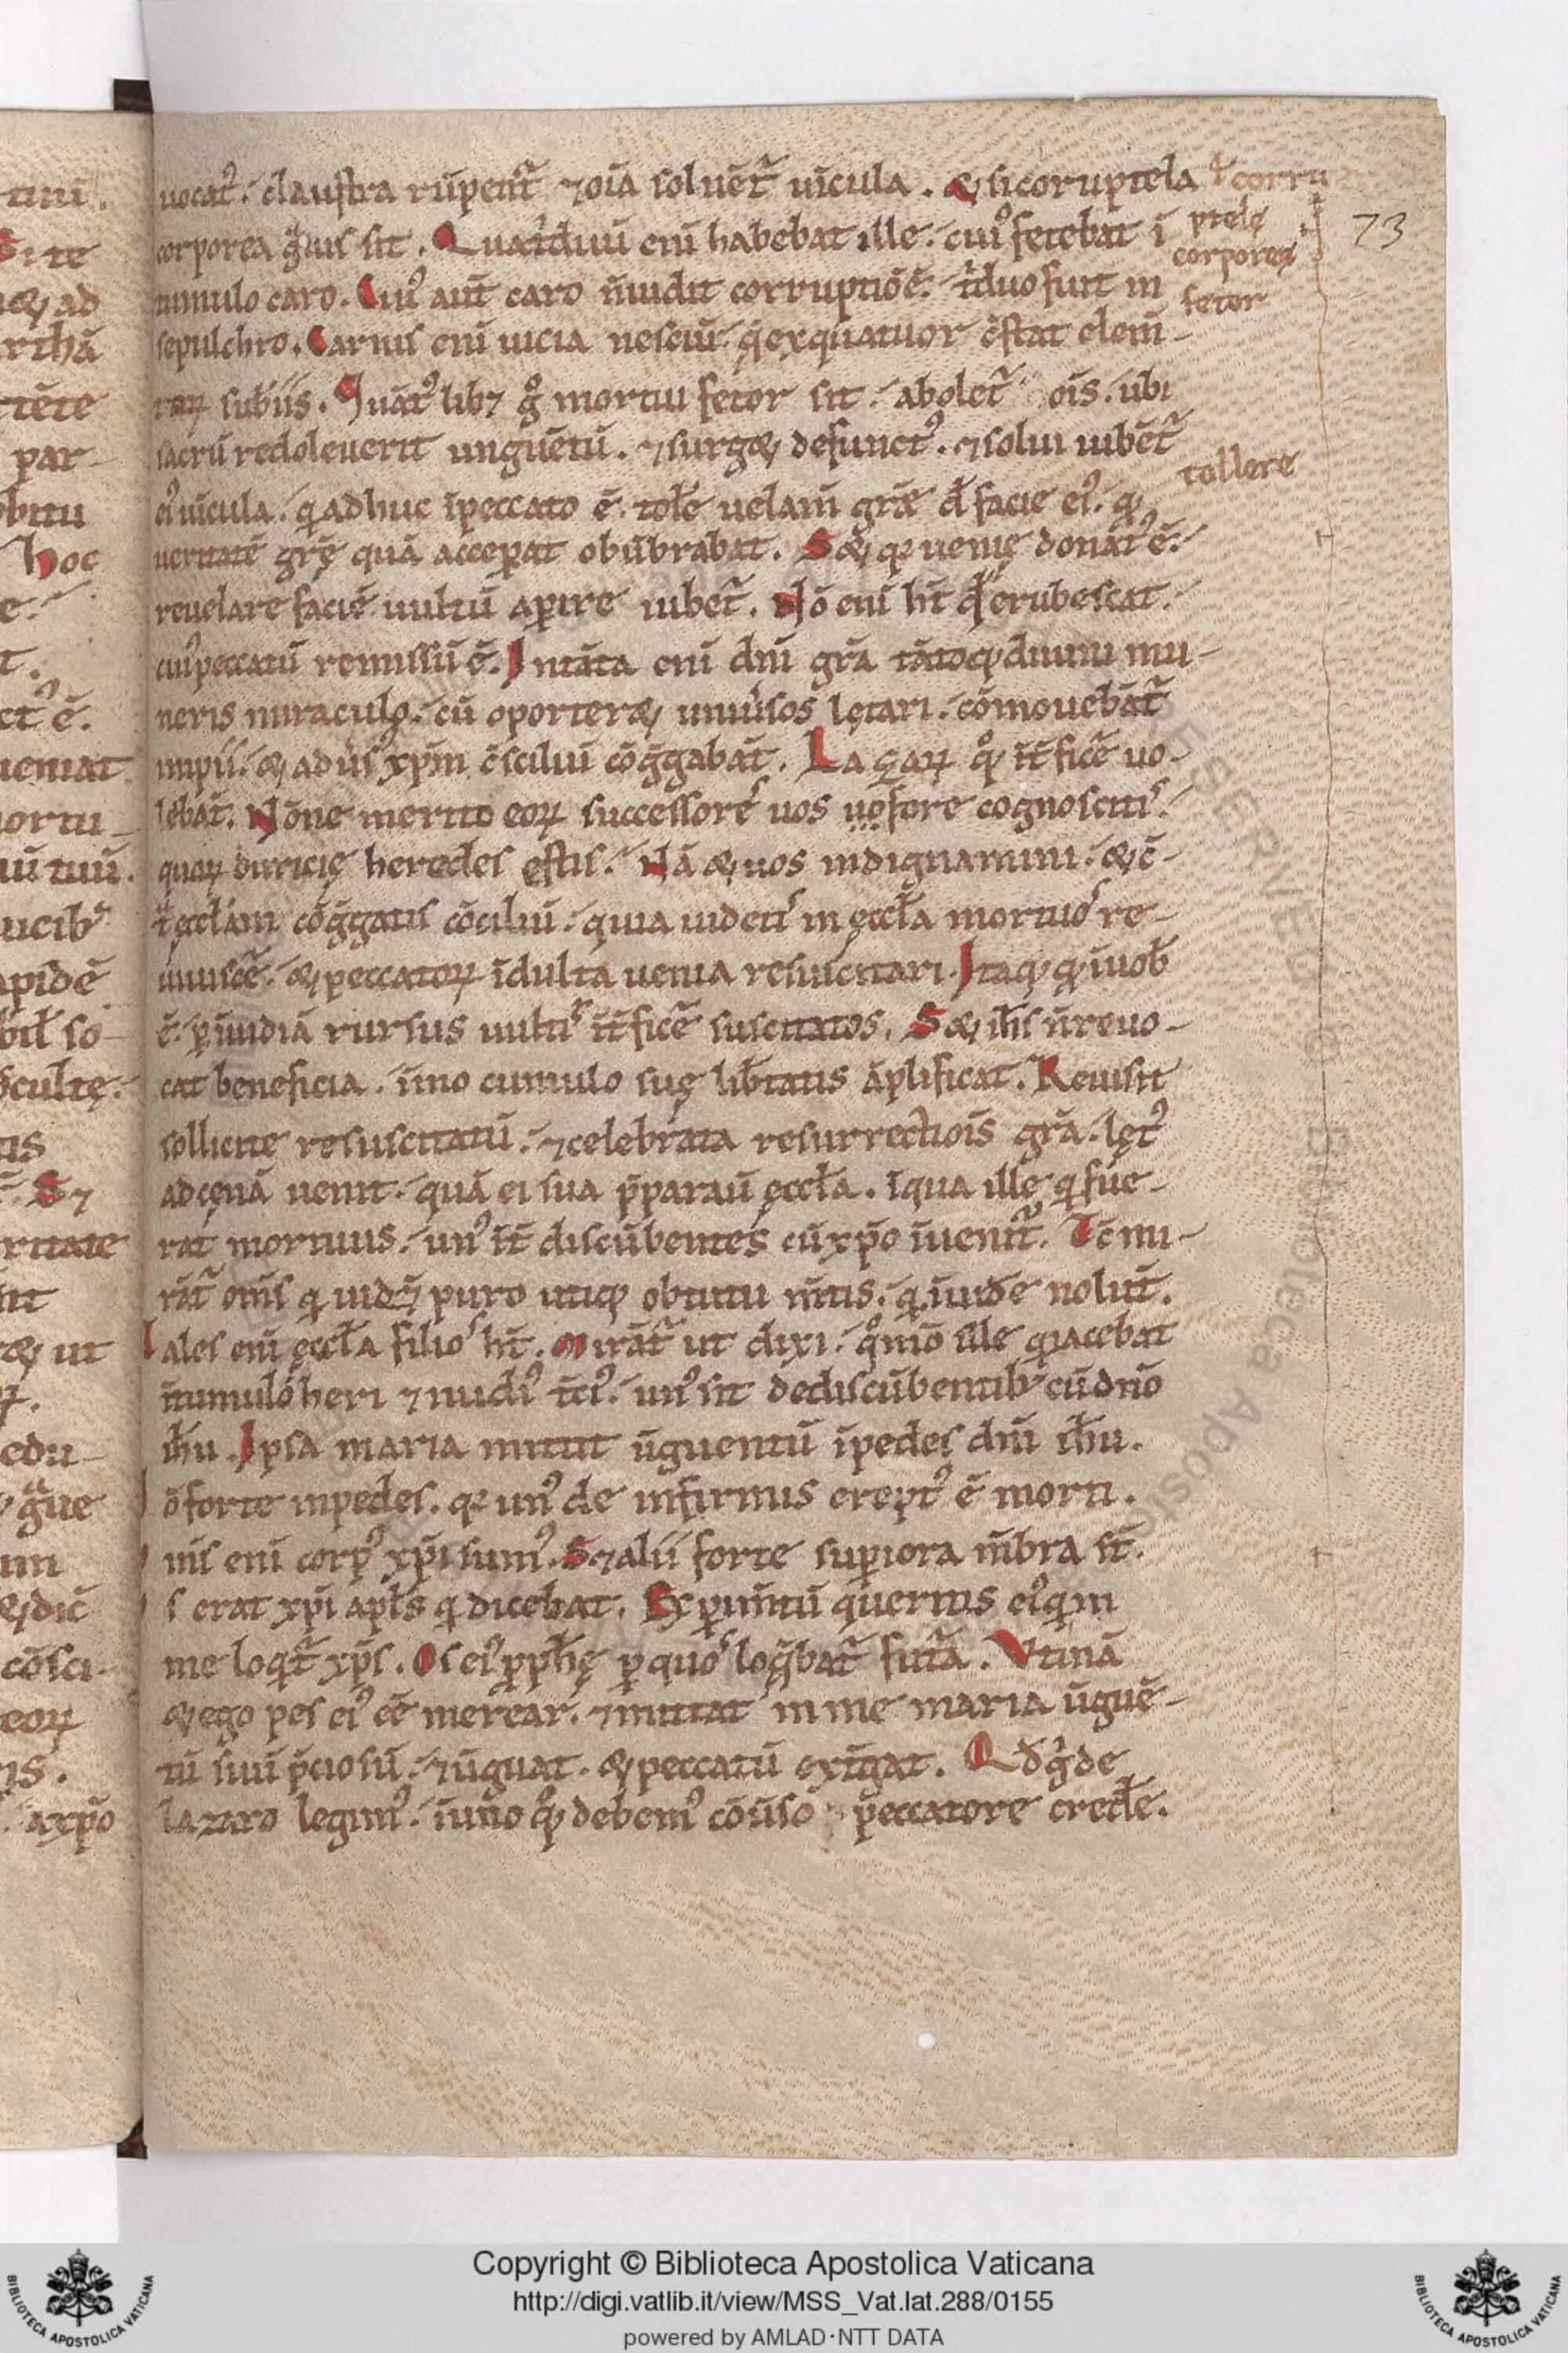 uocat᷒. claustra rūpent᷑ ⁊ oīa soluēt᷑ uīcula. & si coruptela
corporea g̑uis sit. Quat͛duū eni habebat ille. cui᷒ fetebat ī
tumulo caro. Cui᷒ aut̄ caro n̄ uidit corruptiōē. t͛duo fuit in
sepulchro. Carnis eni uicia nesciu̅. q̄ ex quatuor c̄stat elem̄-
toꝝ subiis. Quāt᷒ lib⁊ g̊ mortui fetor sit. abolet᷑ oīs. ubi
sacrū redoleuerit unguētū. ⁊ surg& defunct᷒. ⁊ solui iubēt᷑
ei᷒ uīcula. q̇ adhuc ī peccato ē. toll̄e uelam̄ grē d̄ facie ei᷒. q̇
ueritatē grę quā accepat obūbrabat. S& q; uenię donat᷒ ē.
reuelare faciē uultū apire iubet᷑. Nō eni ht̄ qd̄ erubescat.
cui᷒ peccatū remissū ē. In tāta eni dn̄i grā tātoq; diuini mu-
neris miraculo. cū oporter& uniu͛sos lętari. cōmouebāt᷑
impii. & adu͛s xp̄m c̄siliū cōg̑gabāt. Lazaꝝ q̊q; īt͛ficē uo-
lebāt. Nōne merito eoꝝ successores uos fore cognoscitis.
quoꝝ duricię heredes estis. Nā & uos indignamini. & c̄-
t͛ eccl̄am cōg̑gatis cōciliū. quia uidetis in eccl̄a mortuos re-
uiuiscē. & peccatoꝝ īdulta uenia resuscitari. Itaq; q̇ ī uob̄
ē. p īuidiā rursus uultis īt͛ficē suscitatos. S& ih̄s n̄ reuo-
cat beneficia. īmo cumulo suę lib͛tatis āplificat. Reuisit
sollicite resuscitatū. ⁊ celebrata resurrectiōis grā. lęt᷒
ad cęnā uenit. quā ei sua p̄parauı̄ eccl̄a. ī qua ille q̇ fue-
rat mortuus. un᷒ īt͛ discūbentes cū xp̄o īuenit᷑. Tc̄ mi-
rāt᷑ om̄s q̇ uiden̄ puro utiq; obtutu m̄tis. q̇ īuidē nolūt.
Tales eni eccl̄a filios ht̄. Mirāt᷑ ut dixi. q̊mō ille q̇ iacebat
ī tumulo heri ⁊ nudi᷒ t͛ci᷒. un᷒ sit de discūbentib; cū dn̄o
ih̄u. Ipsa maria mittit ūguentū ī pedes dn̄i ih̄u.
ō forte in pedes. q; un᷒ de infimis erept᷒ ē morti.
nīs eni corp᷒ xp̄i sum᷒. S⁊ alii forte supiora m̄bra st̄.
s erat xp̄i apl̄s q̇ dicebat. Expim̄tū queritis ei᷒ q̇ in
me loq̇t᷑ xp̄s. Os ei᷒ pph̄ę p quos loq̄bat᷑ futā. Vtinā
& ego pes ei᷒ cē merear. ⁊ mittat in me maria ūguē-
tū suū p̄ciosū. ⁊ ūguat. & peccatū exīgat. Qd g̊ de
lazaro legim᷒. īmo q̊q; debem᷒ cōu͛so peccatore cred̄e.
ł corru
ptelę
corporeę
fetor
tollere
73
Copyright © Biblioteca Apostolica Vaticana
http://digi.vatlib.it/view/MSS_Vat.lat.288/0155
powered by AMLAD·NTT DATA
BIBLIOTECA APOSTOLICA VATICANA
BIBLIOTECA APOSTOLICA VATICANA